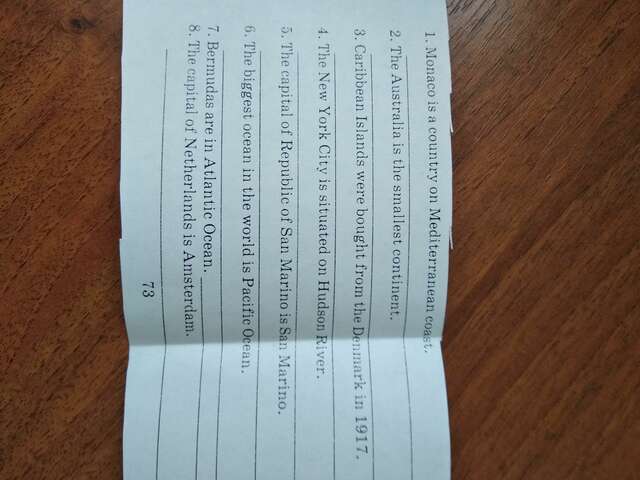 1. Monaco is a country on Mediterranean coast.
2. The Australia is the smallest continent.
3. Caribbean Islands were bought from the Denmark in 1917.
4. The New York City is situated on Hudson River.
5. The capital of Republic of San Marino is San Marino.
6. The biggest ocean in the world is Pacific Ocean.
7. Bermudas are in Atlantic Ocean.
8. The capital of Netherlands is Amsterdam.
73